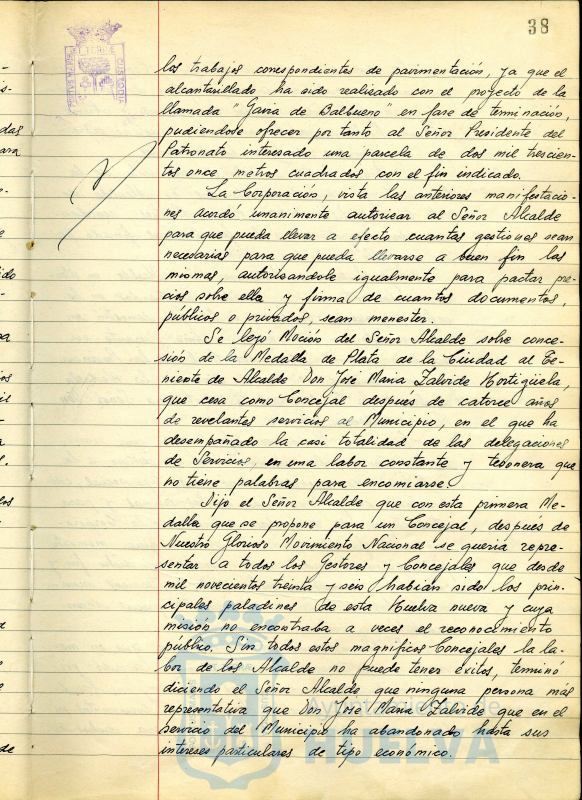 38
los trabajos correspondientes de pavimentación, ya que el
alcantarillado ha sido realizado con el proyecto de la
llamada "Gavia de Balbueno" en fase de terminación,
pudiendose ofrecer por tanto al Señor Presidente del
Patronato interesado una parcela de dos mil trescien-
tos once, metros cuadrados con el fin indicado.
La Corporación, vista las anteriores manifestacio-
nes acordó unanimente autorizar al Señor Alcalde
para que pueda llevar a efecto cuantas gestiones sean
necesarias para que pueda llevarse a buen fin las
mismas, autorizandole igualmente para pactar pre-
cios sobre ella y firma de cuantos documentos,
públicos o privados, sean menester.
Se leyó Moción del Señor Alcalde sobre conce-
sión de la Medalla de Plata de la Ciudad al Te-
niente de Alcalde Don José Maria Zalvide Hortigüela,
que cesa como Concejal después de catorce años
de revelantes servicios al Municipio, en el que ha
desempañado la casi totalidad de las delegaciones
de Servicios, en una labor constante y tesonera que
no tiene palabras para encomiarse
Dijo el Señor Alcalde que con esta primera Me-
dalla que se propone para un Concejal, después de
Nuestro Glorioso Movimiento Nacional se queria repre-
sentar a todos los Gestores y Concejales que desde
mil novecientos treinta y seis habian sido los prin-
cipales paladines de esta Huelva nueva y cuya
misión no encontraba a veces el reconocimiento
público. Sin todos estos magnificos Concejales la la-
bor de los Alcalde no puede tener éxitos, terminó
diciendo el Señor Alcalde que ninguna persona más
representativa que Don José Maria Zalvide que en el
servicio del Municipio ha abandonado hasta sus
intereses particulares de tipo económico.